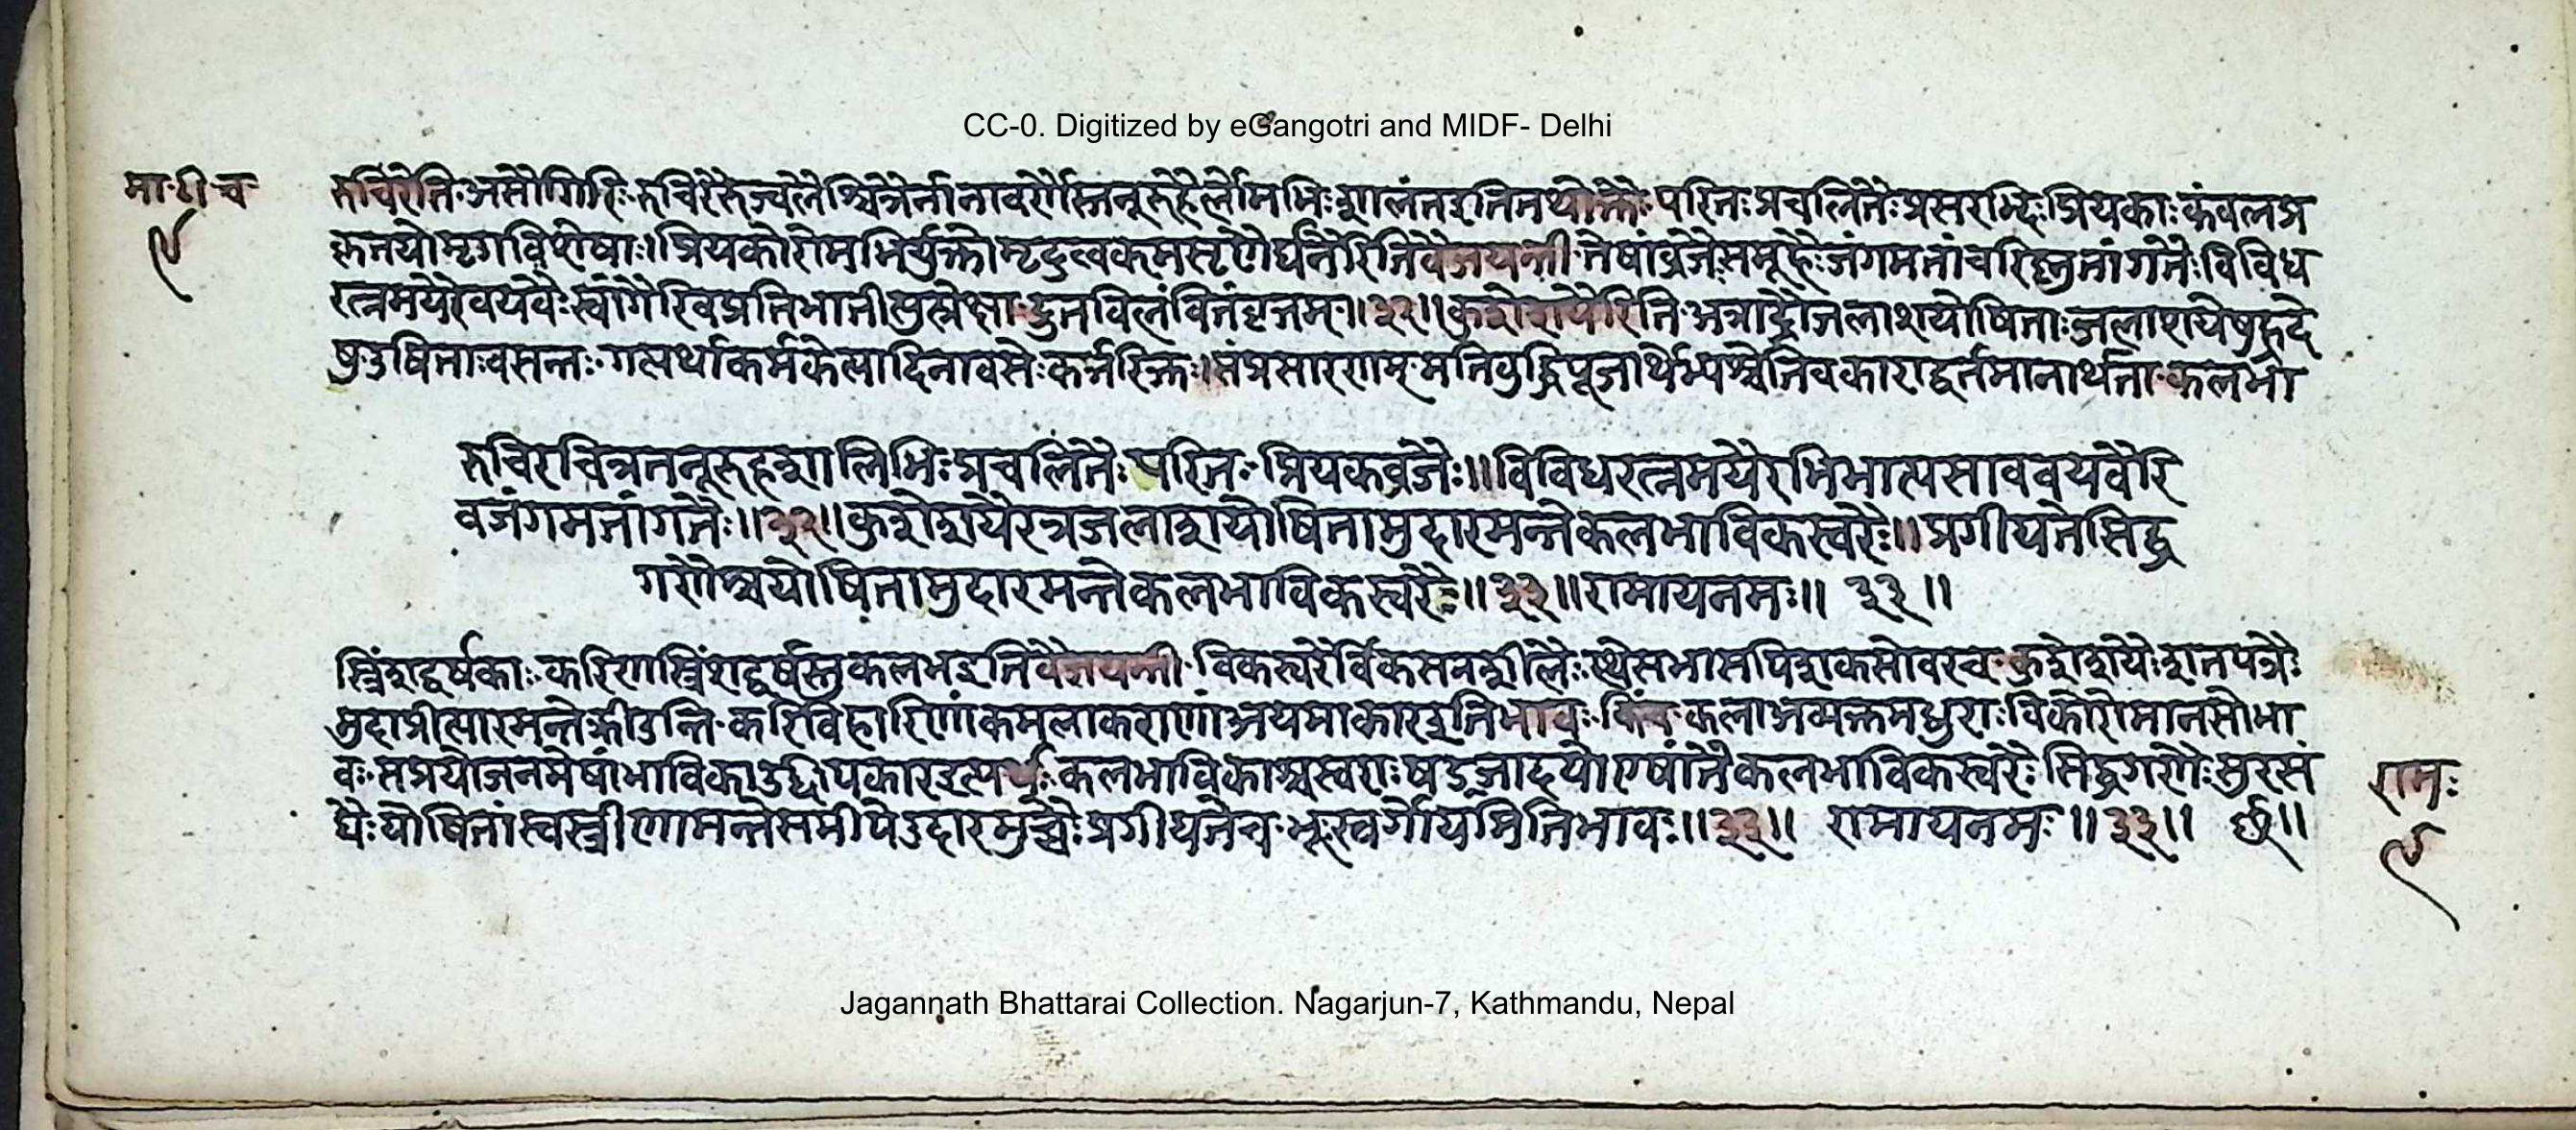 CC-0. Digitized by eGangotri and MIDF- Delhi
मा॰टी॰च
९
रुचिरेति॰असौगिरिः॰रुचिरैरुज्वलैश्चित्रैर्नानावर्णैस्तनूरुहैर्लोमभिःशालंतइतितथोक्तैः॰परितःप्रचलितैःप्रसरद्भिःप्रियकाःकंबलप्र
कृतयोमृगविशेषाः।प्रियकोरोमभिर्युक्तोमृदुत्वकमसृणैर्घनैरितिवैजयन्ती॰तेषांव्रजैःसमूहैःजंगमतांचरिष्णुतांगतैःविविध
रत्नमयैरवयवैःस्वांगैरिवप्रतिभातीत्युत्प्रेक्षा॰द्रुतविलंवितंवृत्तम्॥३२॥कुशेशयैरिति॰अत्राद्रौजलाशयोषिताःजलाशयेषुह्रदे
षुउषिताःवसन्तः॰गत्यर्थाकर्मकेत्यादिनावसेःकर्त्तरिक्तः।संप्रसारणम्॰मतिबुद्धिपूजार्थेभ्यश्चेतिचकाराद्वर्तमानार्थता॰कलभा
रुचिरचित्रतनूरुहशालिभिःप्रचलितैःपरितःप्रियकव्रजैः॥विविधरत्नमयैरभिभात्यसाववयवैरि
वजंगमतांगतैः॥३२॥कुशेशयैरत्रजलाशयोषितामुदारमन्तेकलभाविकस्वरैः॥प्रगीयतेसिद्ध
गणैश्चयोषितामुदारमन्तेकलभाविकस्वरैः॥३३॥रामायनमः॥ ३३॥
स्त्रिंशद्वर्षकाः॰करिणस्त्रिंशद्वर्षस्तुकलभइतिवैजयन्ती॰विकस्वरैर्विकसनशीलैः॰स्थेसभासपिशकसोवरच॰कुशेशयैःशतपत्रैः
मुदाप्रीत्यारमन्तेक्रीडन्ति॰करिविहारिणांकमलाकराणांअयमाकारइतिभावः॰किंच॰कलाअव्यक्तमधुराःविकारोमानसोभा
वः॰सप्रयोजनमेषांभाविकाउद्दीपकारइत्यर्थः॰कलभाविकाश्चस्वराःषड्जादयोएषांतैःकलभाविकस्वरैःसिद्धगणैःसुरसं
घैःयोषितांस्वस्त्रीणामन्तेसमीपेउदारमुच्चैःप्रगीयतेच॰भूःस्वर्गोयमितिभावः॥३३॥ रामायनमः॥३३॥ छ॥
रामः
९
Jagannath Bhattarai Collection. Nagarjun-7, Kathmandu, Nepal